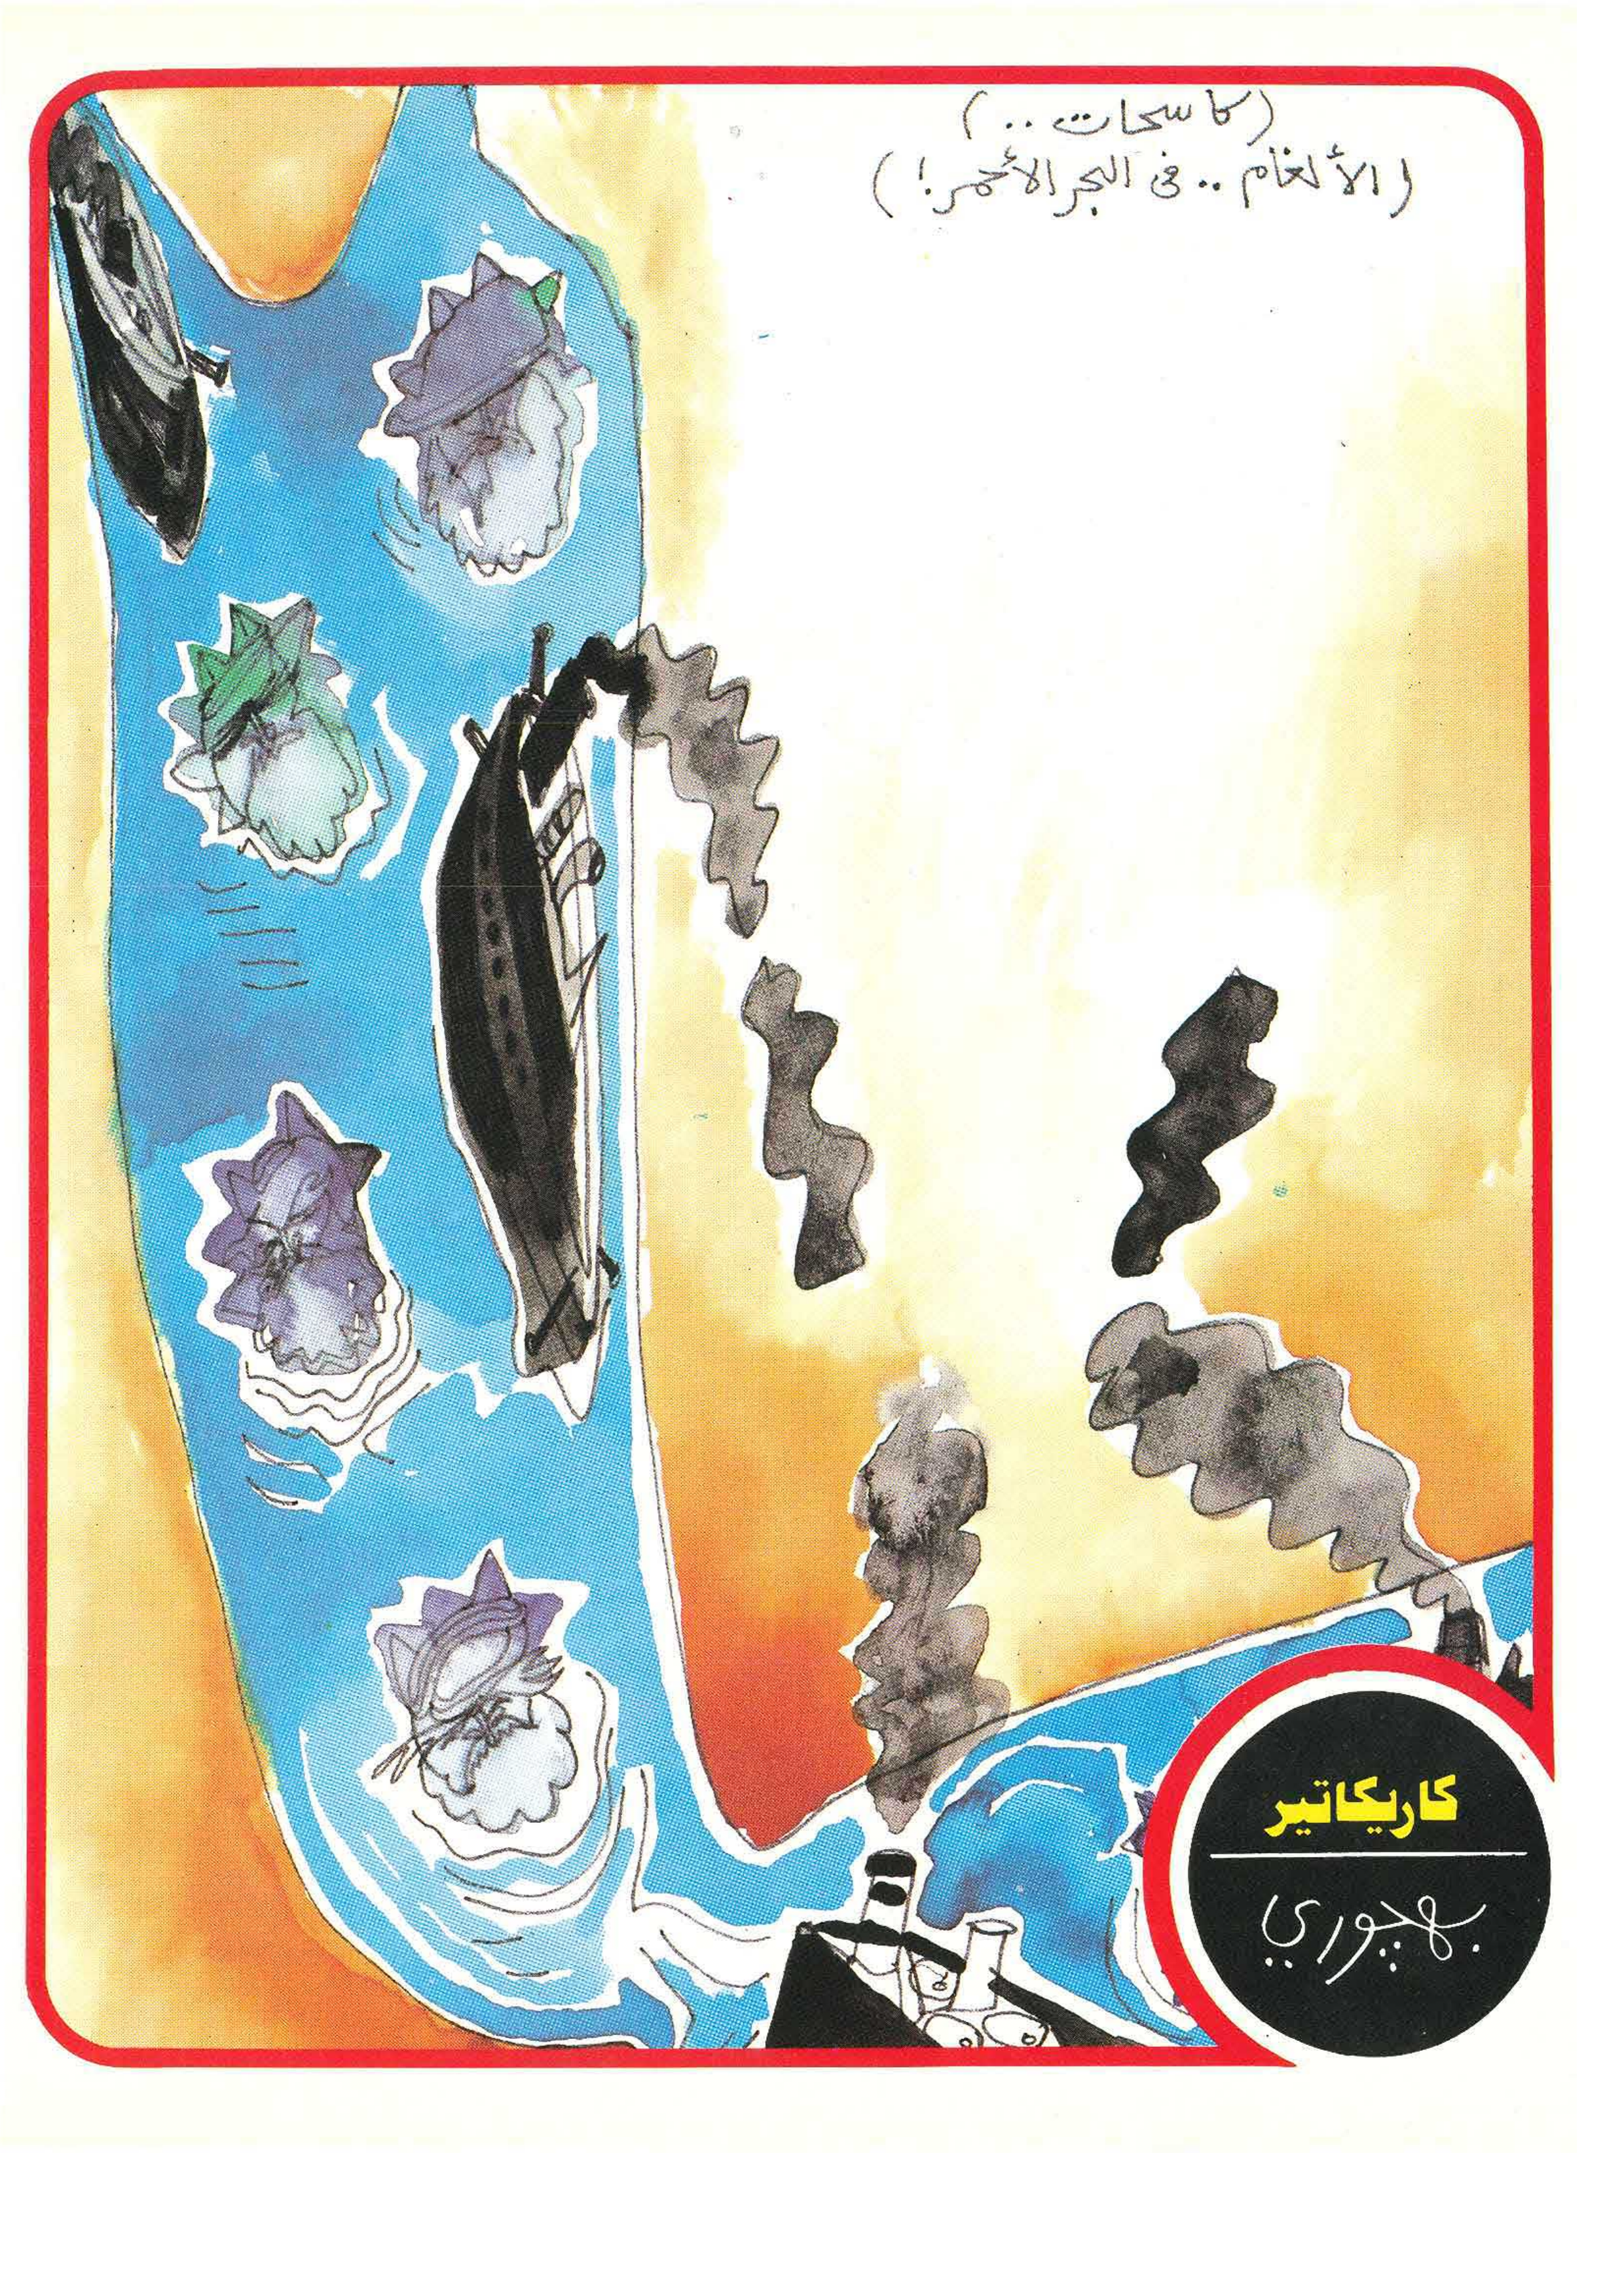 (كاسحات ..)
(الألغام .. فى البحر الأحمر!)
كاريكاتير
بهجوري